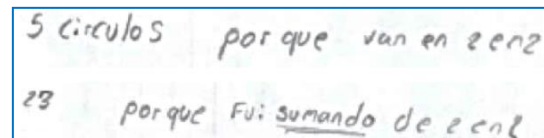 5 circulos por que van en 2 en 2
23 porque Fui sumando de 2 en 2